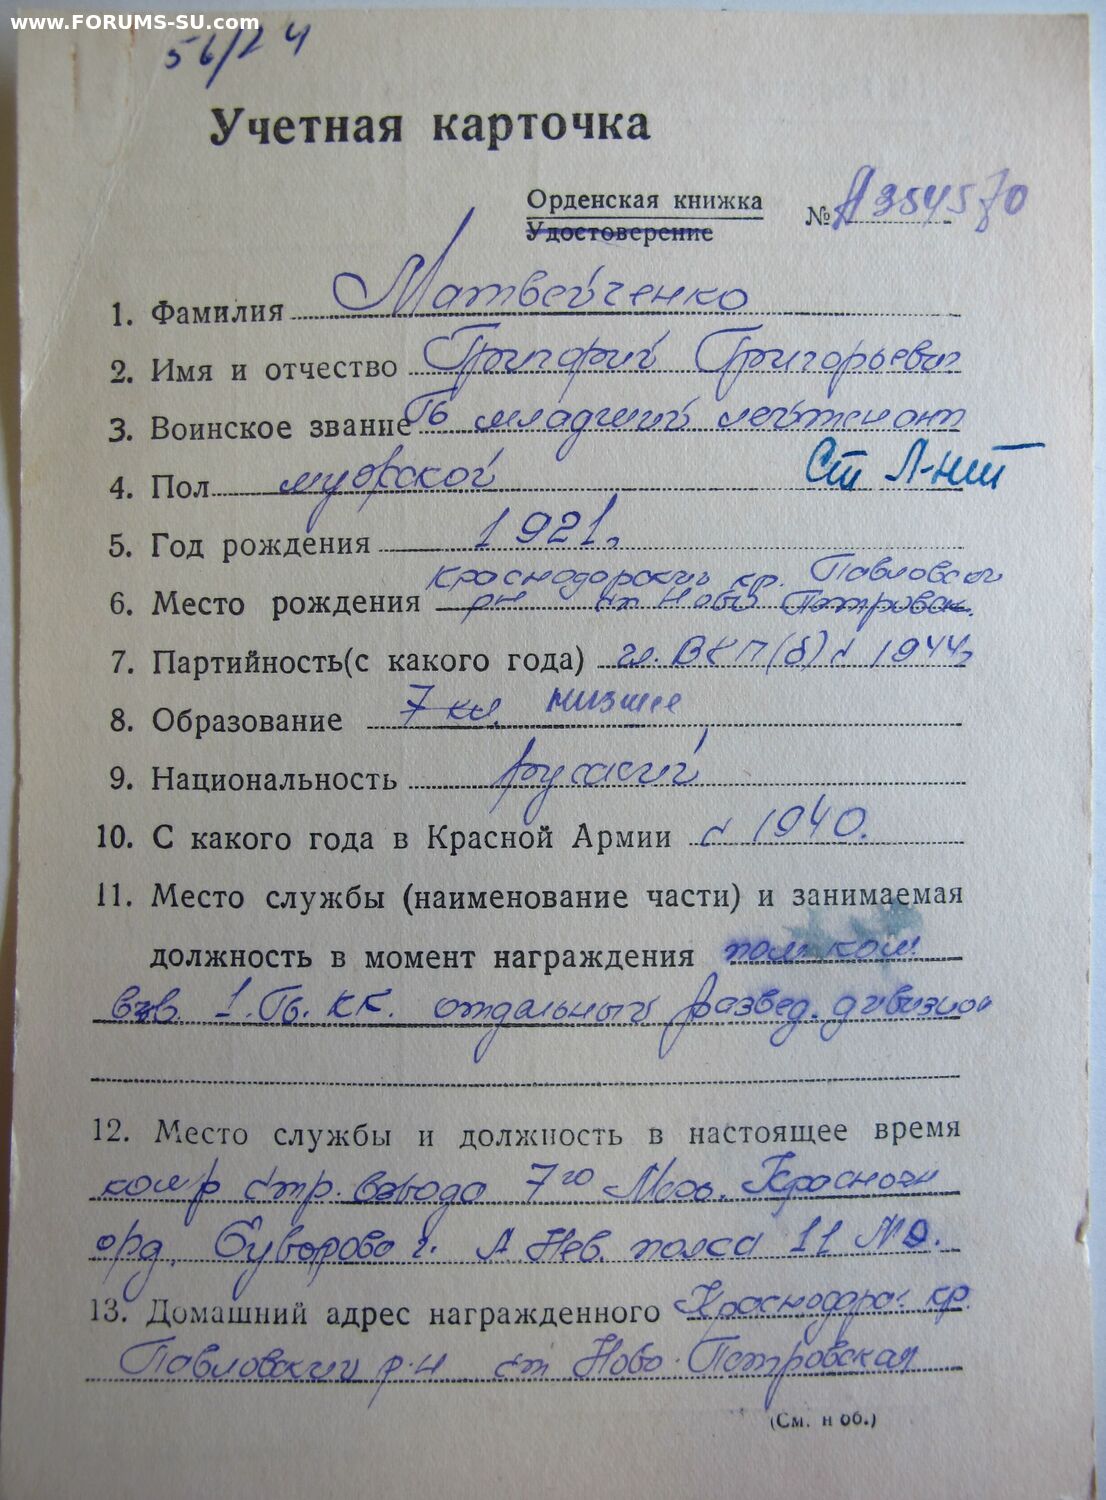 www.FORUMS-SU.com
56/24
Учетная карточка
Орденская книжка
№ А354570
Удостоверение
1. Фамилия Матвейченко
2. Имя и отчество Григорий Григорьевич
3. Воинское звание Гв младший лейтенант
4. Пол мужской Ст Л-нт
5. Год рождения 1921г
Краснодарский кр. Павловский
6. Место рождения рн ст Ново Петровск.
7. Партийность(с какого года) чл. ВКП(б) с 1944г
8. Образование 7 кл. низшее
9. Национальность русский
10. С какого года в Красной Армии с 1940.
11. Место службы (наименование части) и занимаемая
должность в момент награждения пом. ком.
взв. 1. Гв. КК. отдельный развед. дивизион
12. Место службы и должность в настоящее время
ком-р стр. взвода 7го Мех. Краснозн
орд. Суворова и А. Нев. полка 11 МД.
13. Домашний адрес награжденного Краснодарс. кр.
Павловский р-н ст Ново-Петровская
(См. н об.)